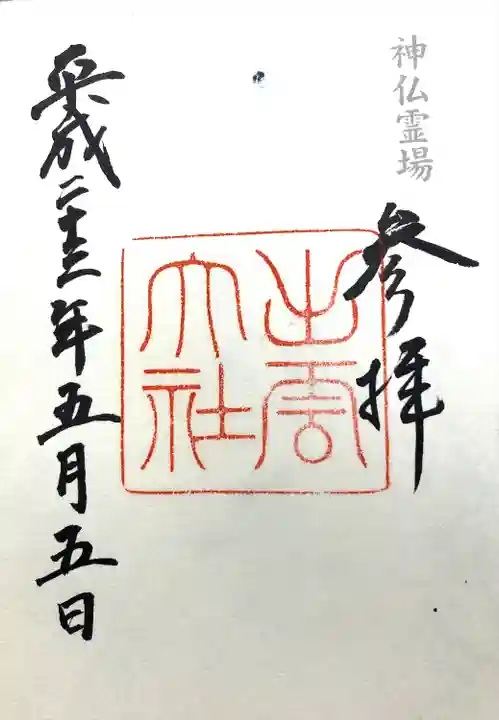 神仏霊場
参拝
出雲
大社
平成二十三年五月五日